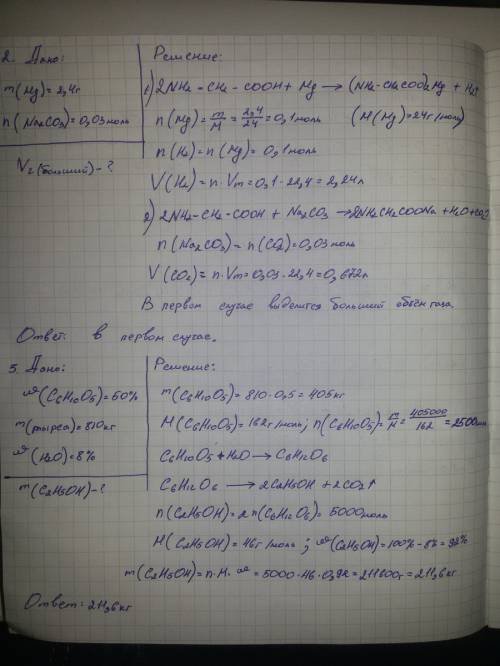 2. Дано:
m(Mg)=2,4г
n(Na2CO3)=0,03моль
V2(больший)-?
Решение:
1) 2NH2-CH2-COOH + Mg → (NH2-CH2COO)2Mg + H2↑
n(Mg)=m/M=2,4/24=0,1моль (M(Mg)=24г/моль)
n(H2)=n(Mg)=0,1моль
V(H2)=n·Vm=0,1·22,4=2,24л
2) 2NH2-CH2-COOH + Na2CO3 → 2NH2CH2COONa + H2O+CO2↑
n(Na2CO3)=n(CO2)=0,03моль
V(CO2)=n·Vm=0,03·22,4=0,672л
В первом случае выделится больший объём газа.
Ответ: в первом случае.
3. Дано:
ω(C6H10O5)=50%
m(маиса)=810кг
ω(H2O)=8%
m(C2H5OH)-?
Решение:
m(C6H10O5)=810·0,5=405кг
M(C6H10O5)=162г/моль; n(C6H10O5)=m/M=405000/162=2500моль
C6H10O5+H2O → C6H12O6
C6H12O6 → 2C2H5OH +2CO2↑
n(C2H5OH)=2n(C6H12O6)=5000моль
M(C2H5OH)=46г/моль; ω(C2H5OH)=100%-8%=92%
m(C2H5OH)=n·M·ω=5000·46·0,92=211600г=211,6кг
Ответ: 211,6кг